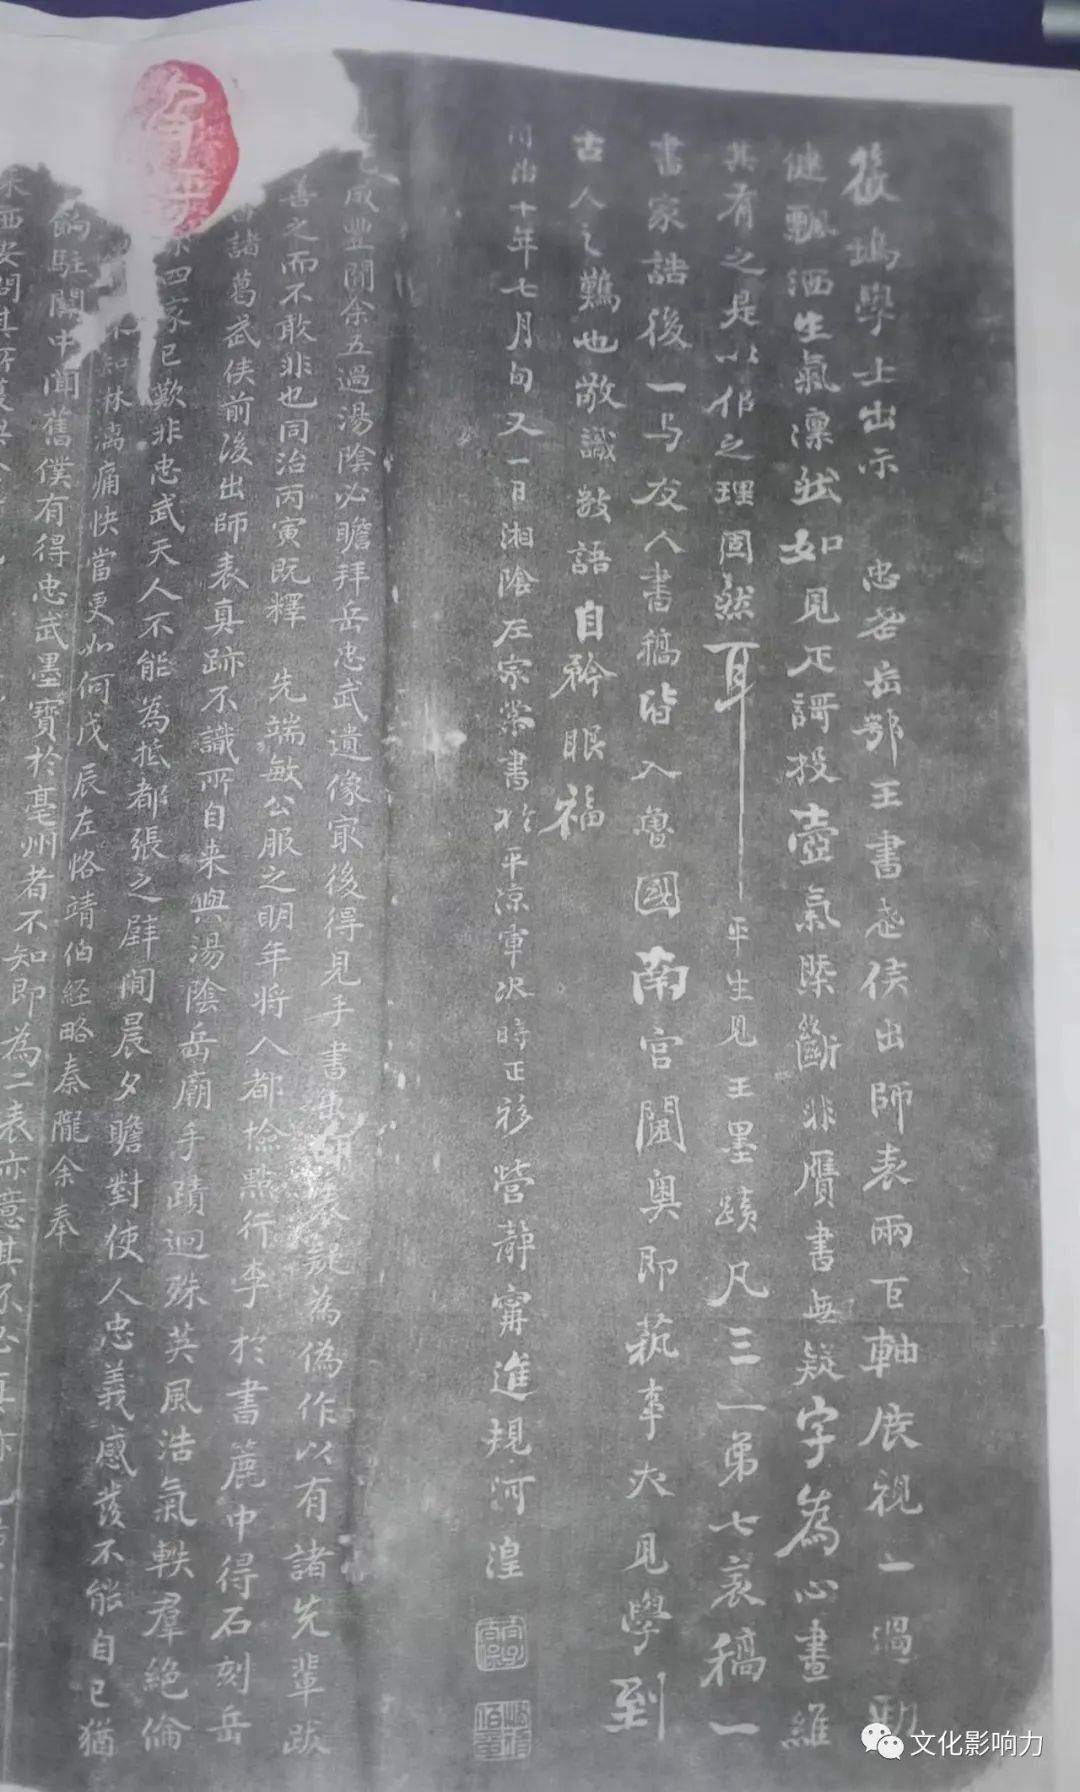 後塢學士出示 忠武岳鄂王書武侯出師表兩巨軸展視一過勁
健飄洒生氣凜然如見正諤投壺氣槩斷非贋書無疑字為心畫維
其有之是以佀之理固然耳平生見王墨蹟凡三一弟七袠稿一
書家誥後一与友人書稿皆入魯國南宮閫奧即藝事大見學到
古人之難也敬識數語自矜眼福
同治十年七月旬又一日湘陰左宗棠書於平涼軍次時正移營靜甯進規河湟
咸豐間余五過湯陰必瞻拜岳忠武遺像寂後得見手書出師表疑為偽作以有諸先輩跋
善之而不敢非也同治丙寅既釋 先端敏公服之明年將入都檢點行李於書簏中得石刻岳
諸葛武侯前後出師表真跡不識所自来與湯陰岳廟手蹟迥殊英風浩氣軼羣絕倫
四家已歎非忠武天人不能為抵都張之壁間晨夕瞻對使人忠義感發不能自已猶
知林漓痛快當更如何戊辰左恪靖伯經略秦隴余奉
餉駐關中聞舊僕有得忠武墨寶於亳州者不知即為二表亦意其不必真